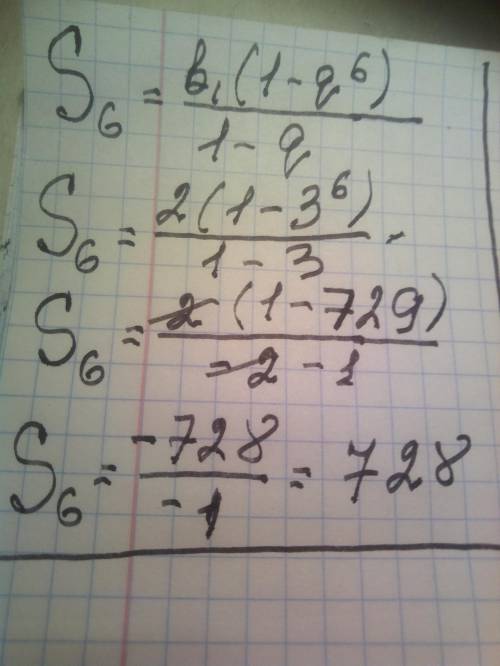 S₆ = b₁(1-q⁶) / 1-q
S₆ = 2(1-3⁶) / 1-3 .
S₆ = 2(1-729) / -2 -1
S₆ = -728 / -1 = 728